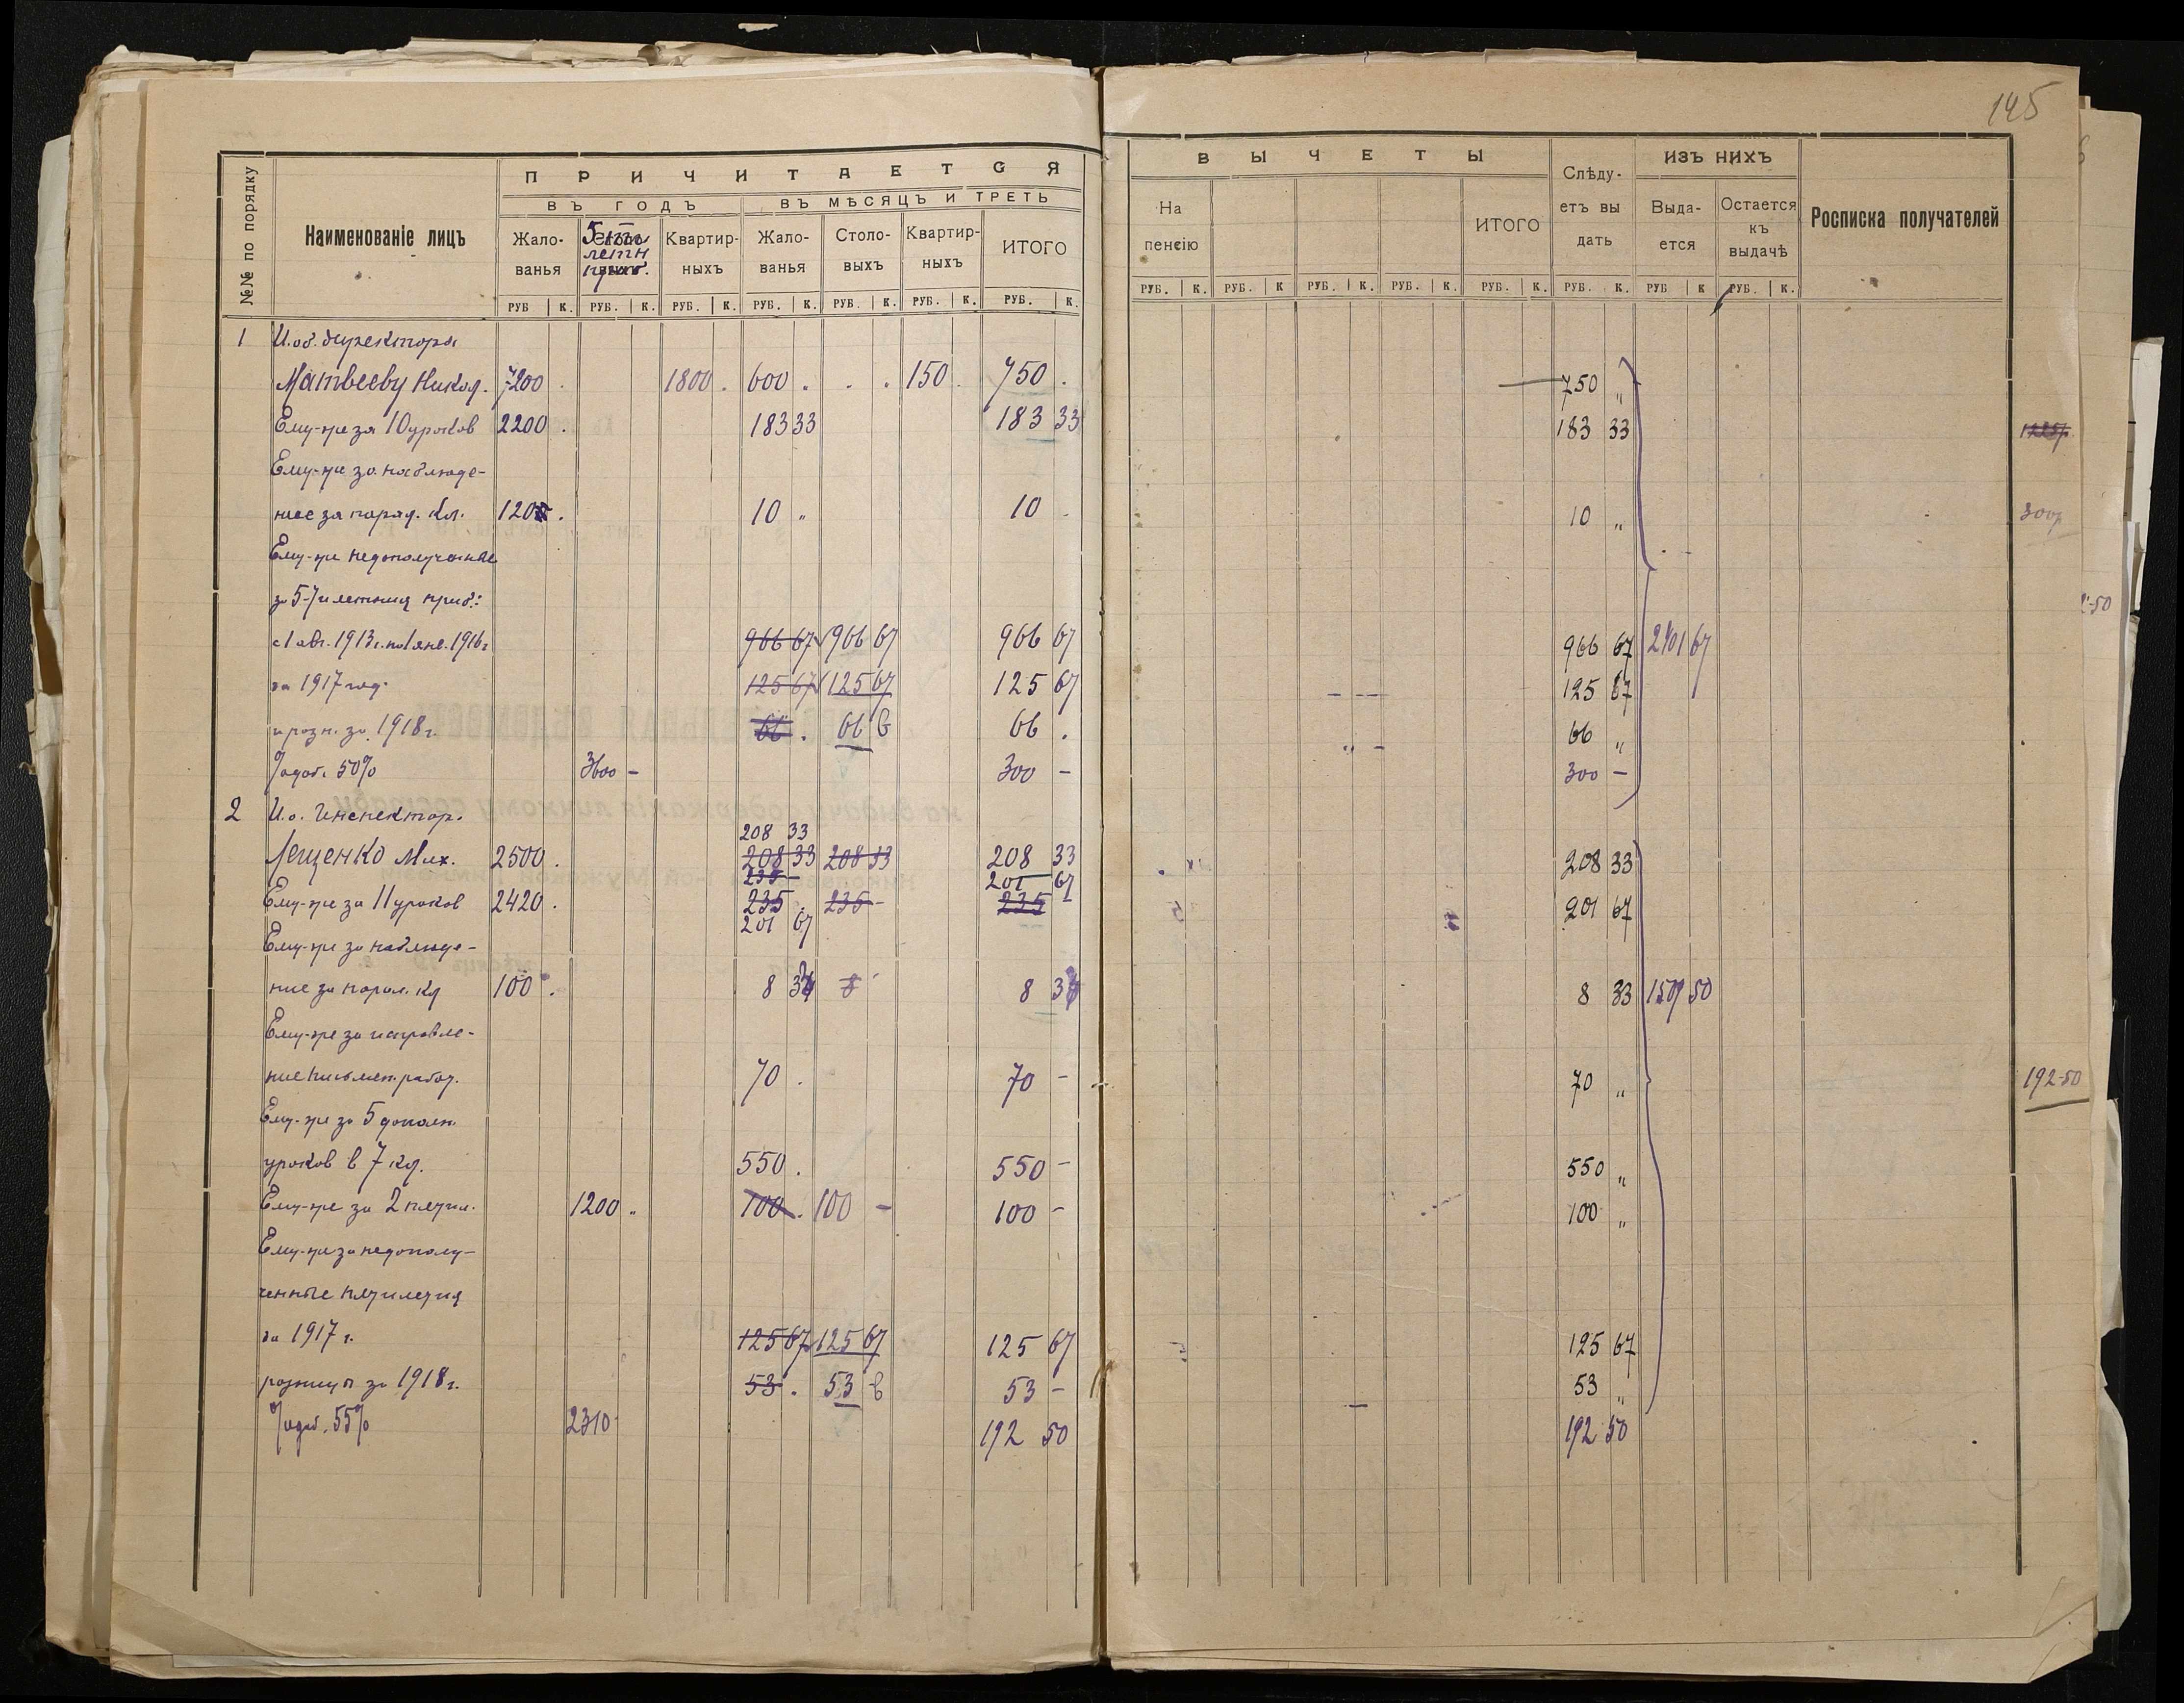 145
№№ по порядку
Наименованіе лицъ
ПРИЧИТАЕТСЯ
ВЪ ГОДЪ
ВЪ МѢСЯЦЪ И ТРЕТЬ
Жало-ванья
5 летн
Квартир-ныхъ
Жало-ванья
Столо-выхъ
Квартир-ныхъ
ИТОГО
РУБ К. РУБ. К. РУБ. К. РУБ. К. РУБ. К. РУБ. К. РУБ. К.
ВЫЧЕТЫ
На пенсію
ИТОГО
Слѣду-етъ вы дать
ИЗЪ НИХЪ
Выда-ется
Остается къ выдачѣ
Росписка получателей
РУБ. К. РУБ. К РУБ. К. РУБ. К. РУБ. К. РУБ. К. РУБ К РУБ. К.
1 И.об. директора
Матвееву Никол. 7200 . 1800 . 600 . . . 150 . 750 . 750 „
Ему-же за 10 уроков 2200 . 183 33 183 33 183 33
Ему-же за наблюде-
ние за парал. кл. 120 . 10 „ 10 . 10 „ 300
Ему-же недополученные
за 5-ти летния приб.:
с 1 авг. 1913 г. по 1 янв. 1916 г 966 67 966 67 966 67 966 67 2401 67
за 1917 год. 125 67 125 67 125 67 125 67
и розн. за 1918 г. 66 . 66 66 . 66 „
% доб. 50% 3600 – 300 – 300 –
2 И.о. Инспектор.
208 33
Лещенко Мих. 2500 . 208 33 208 33 208 33 208 33
235 – 201 67
Ему-же за 11 уроков 2420 . 235 . 235 – 235 201 67
201 67
Ему-же за наблюде-
ние за парал. кл 100 . 8 33 8 8 33 8 33 1509 50
Ему-же за исправле-
ние письмен. работ. 70 . 70 – 70 „ 192-50
Ему-же за 5 дополн.
уроков в 7 кл. 550 . 550 – 550 „
Ему-же за 2 пятил. 1200 „ 100 . 100 – 100 – 100 „
Ему-же за недополу-
ченные пятилетия
за 1917 г. 125 67 125 67 125 67 125 67
розницы за 1918 г. 53 . 53 53 – 53 „
% доб. 55% 2310 192 50 192 50